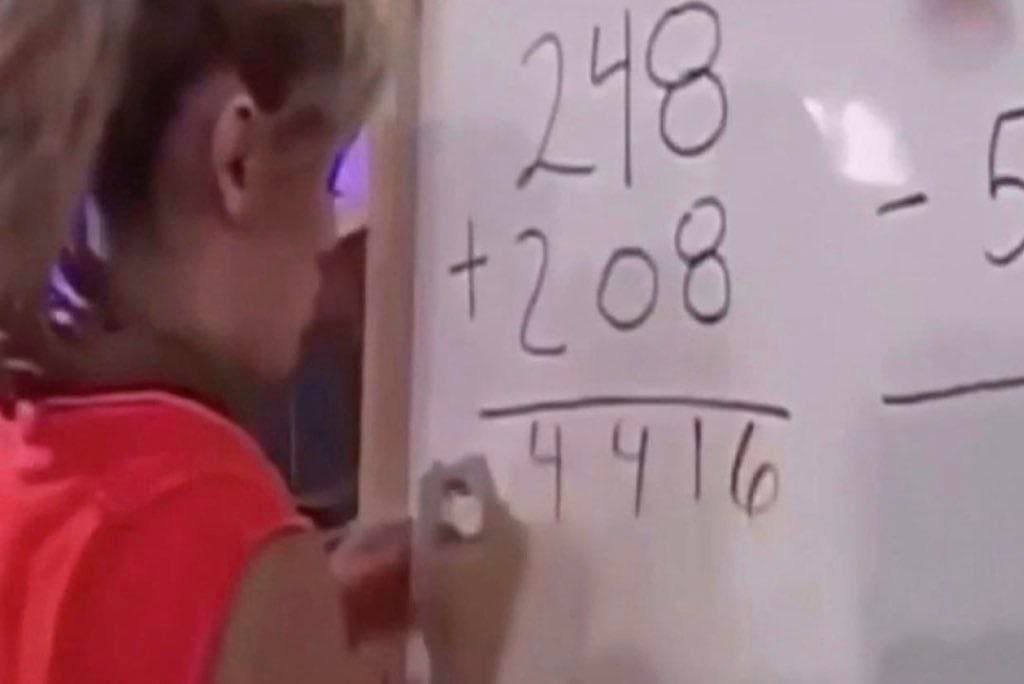 248
+208
4416
- 5